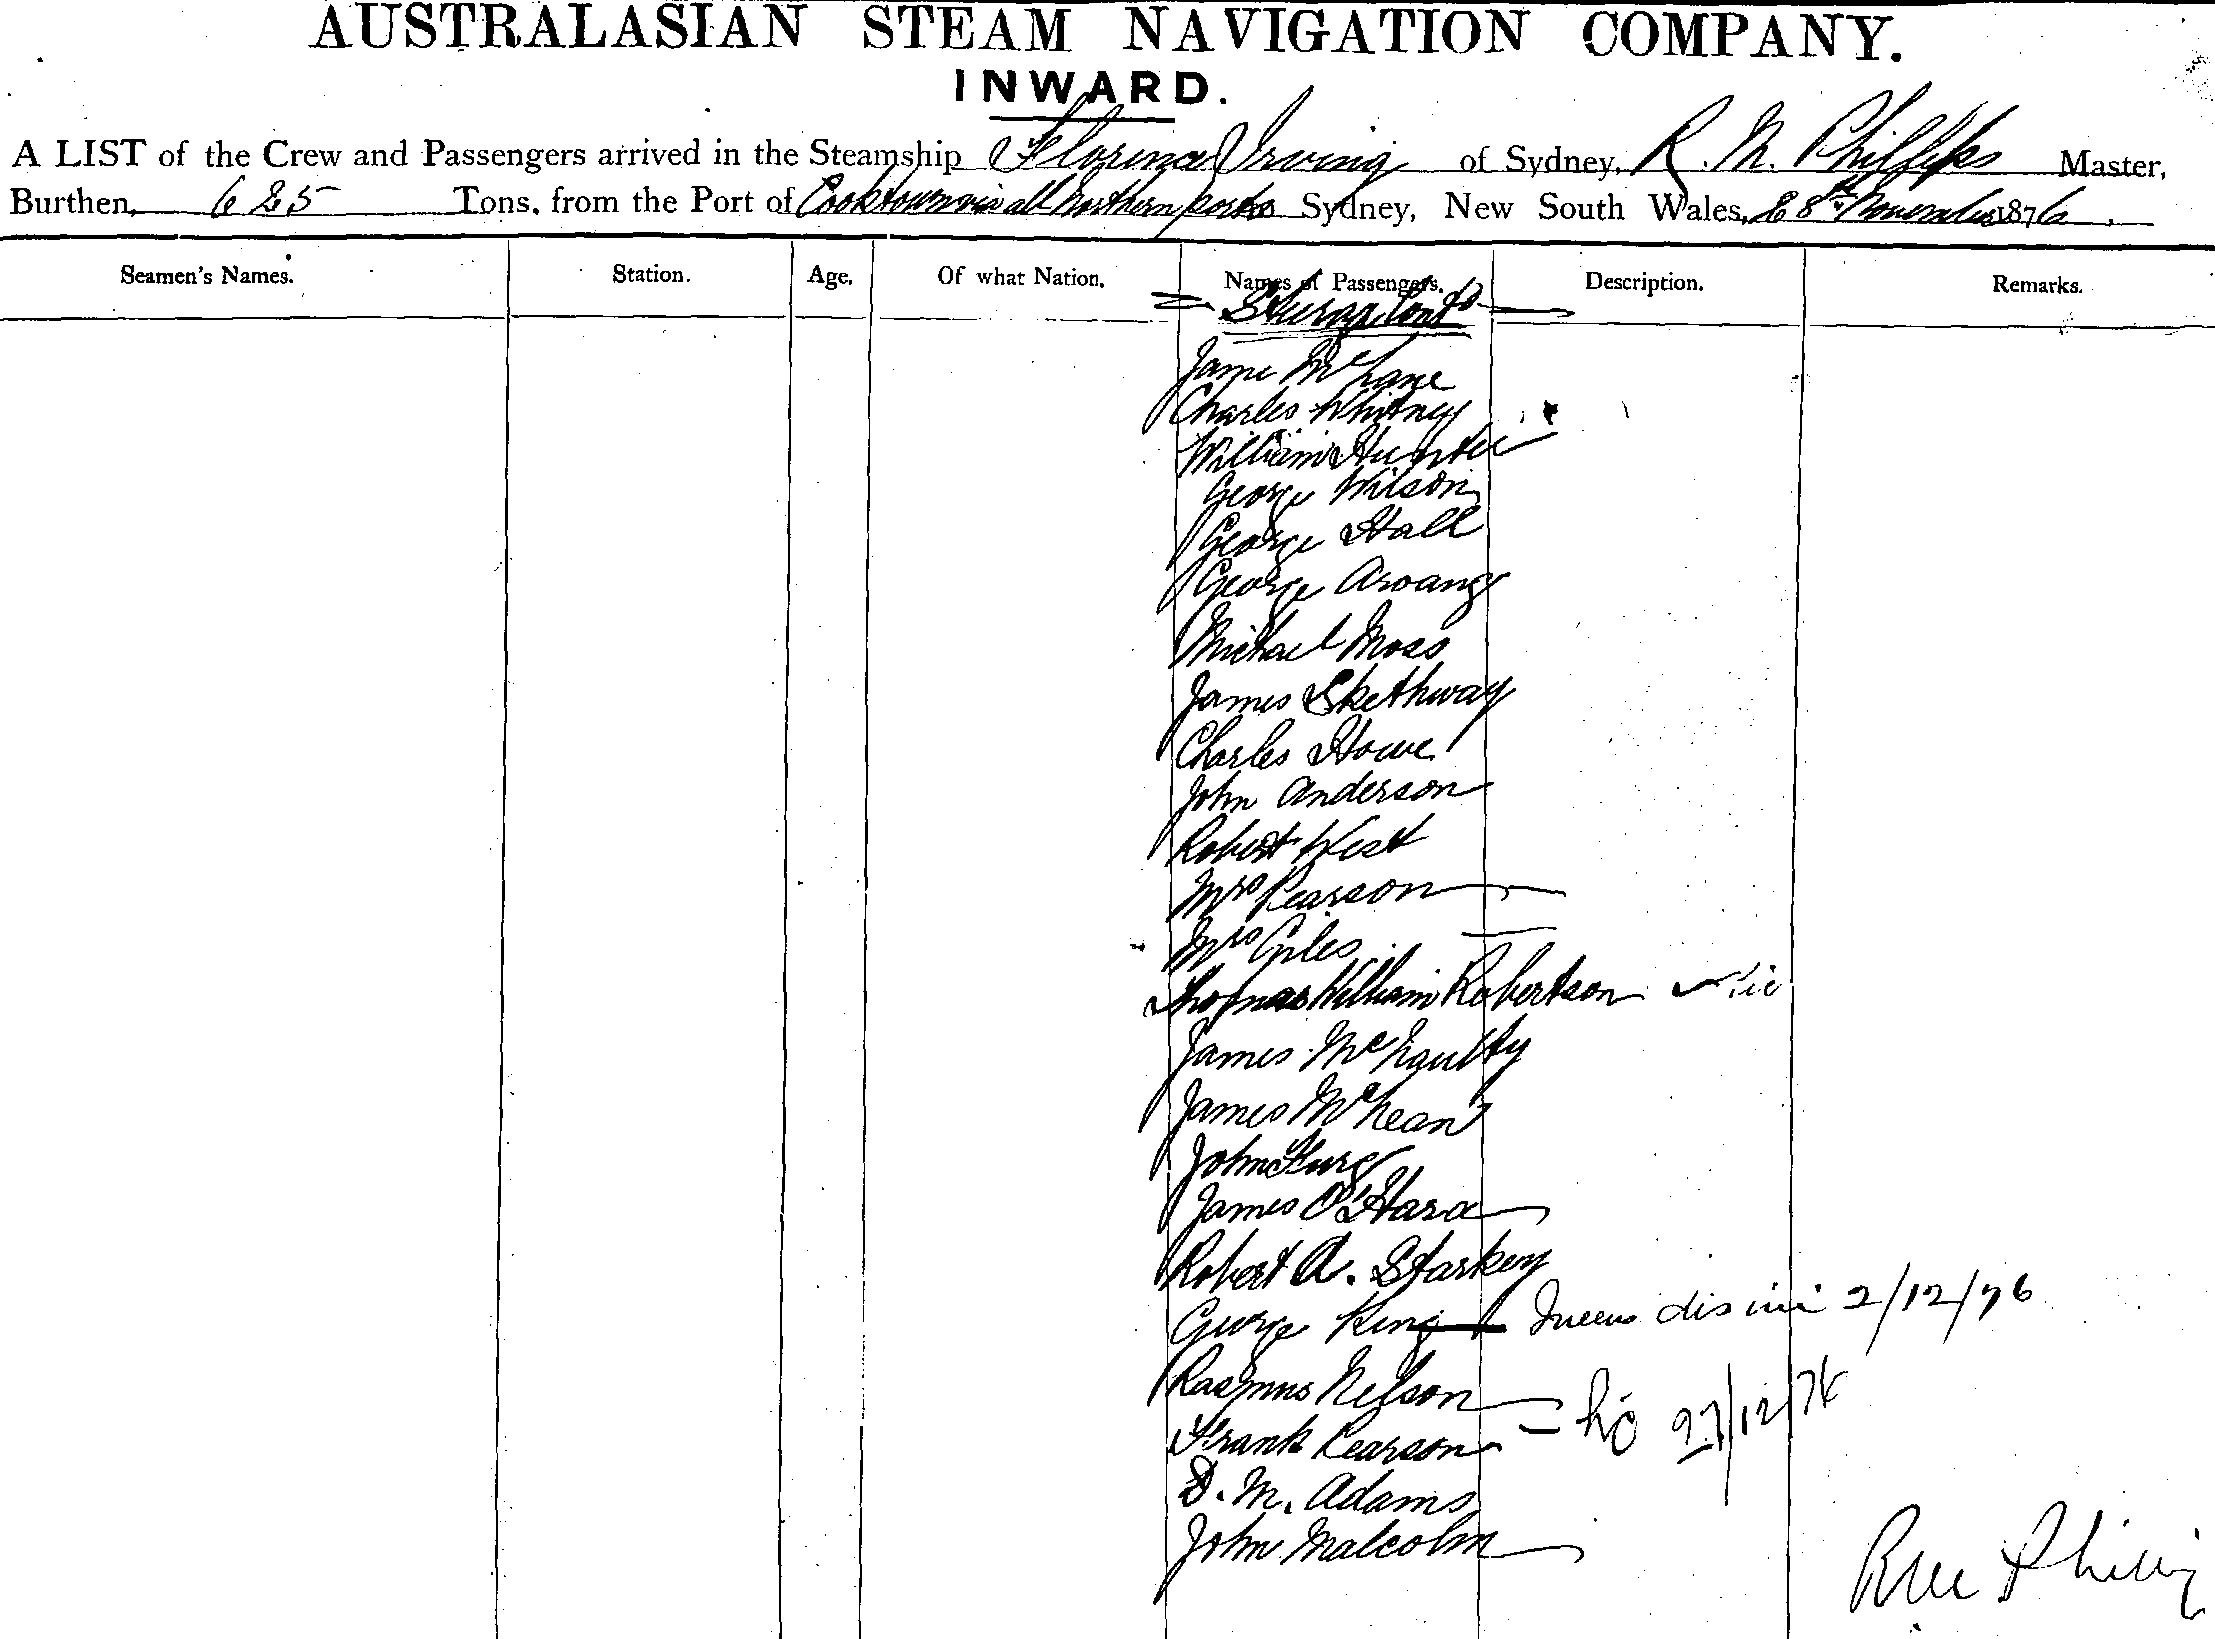 AUSTRALASIAN STEAM NAVIGATION COMPANY.
INWARD.
A LIST of the Crew and Passengers arrived in the Steamship Florence Irving of Sydney, R. M. Phillips Master,
Burthen, 685 Tons, from the Port of Cooktown via all Northern ports Sydney, New South Wales, 28th November 1876.
Seamen's Names. Station. Age. Of what Nation. Names of Passengers. Description. Remarks.
Steerage Contd
James McLane
Charles Whitney
William Hunter
George Wilson
George Hall
George
Michael Moss
James Skethway
Charles Howe
John Anderson
Robert West
Mrs Pearson
Mrs Giles
Thomas William Robertson
James McNaulty
James McKean
John
James O'Hara
Robert A. Starkey
George King 2/12/76
Rasmus Nelson
Frank Pearson 27/12/76
D. M. Adams
John Malcolm